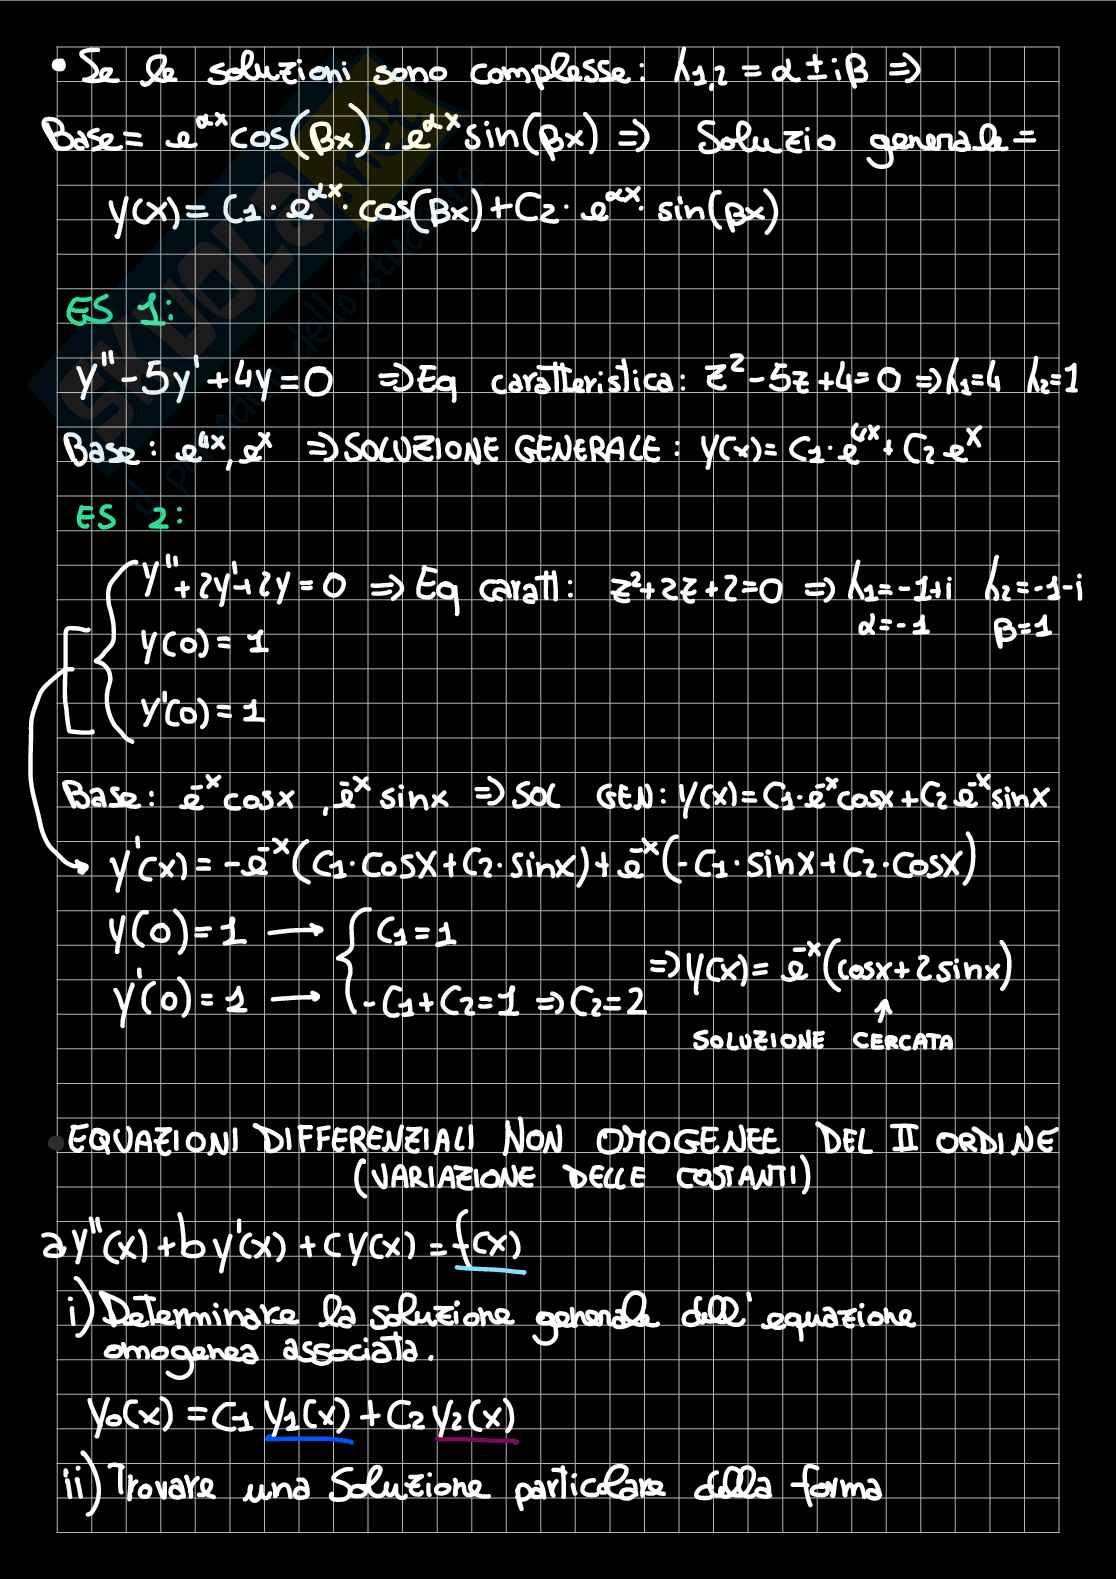 • Se le soluzioni sono complesse: λ1,2 = α ± iβ ⇒
Base = e^αx cos(βx), e^αx sin(βx) ⇒ Soluzio generale =
y(x) = C1 · e^αx · cos(βx) + C2 · e^αx · sin(βx)
ES 1:
y'' - 5y' + 4y = 0 ⇒ Eq caratteristica: z² - 5z + 4 = 0 ⇒ λ1=4 λ2=1
Base: e^4x, e^x ⇒ SOLUZIONE GENERALE: y(x) = C1 · e^4x + C2 e^x
ES 2:
y'' + 2y' + 2y = 0 ⇒ Eq caratt: z² + 2z + 2 = 0 ⇒ λ1 = -1+i λ2 = -1-i
α = -1 β = 1
y(0) = 1
y'(0) = 1
Base: e^-x cosx, e^-x sinx ⇒ SOL GEN: y(x) = C1 · e^-x cosx + C2 e^-x sinx
y'(x) = -e^-x (C1 · cosx + C2 · sinx) + e^-x (-C1 · sinx + C2 · cosx)
y(0) = 1 → { C1 = 1
y'(0) = 1 → { -C1 + C2 = 1 ⇒ C2 = 2 ⇒ y(x) = e^-x (cosx + 2 sinx)
↑
SOLUZIONE CERCATA
• EQUAZIONI DIFFERENZIALI NON OMOGENEE DEL II ORDINE
(VARIAZIONE DELLE COSTANTI)
ay''(x) + by'(x) + cy(x) = f(x)
i) Determinare la soluzione generale dell'equazione
omogenea associata.
y0(x) = C1 y1(x) + C2 y2(x)
ii) Trovare una Soluzione particolare della forma
SKUOLA.net